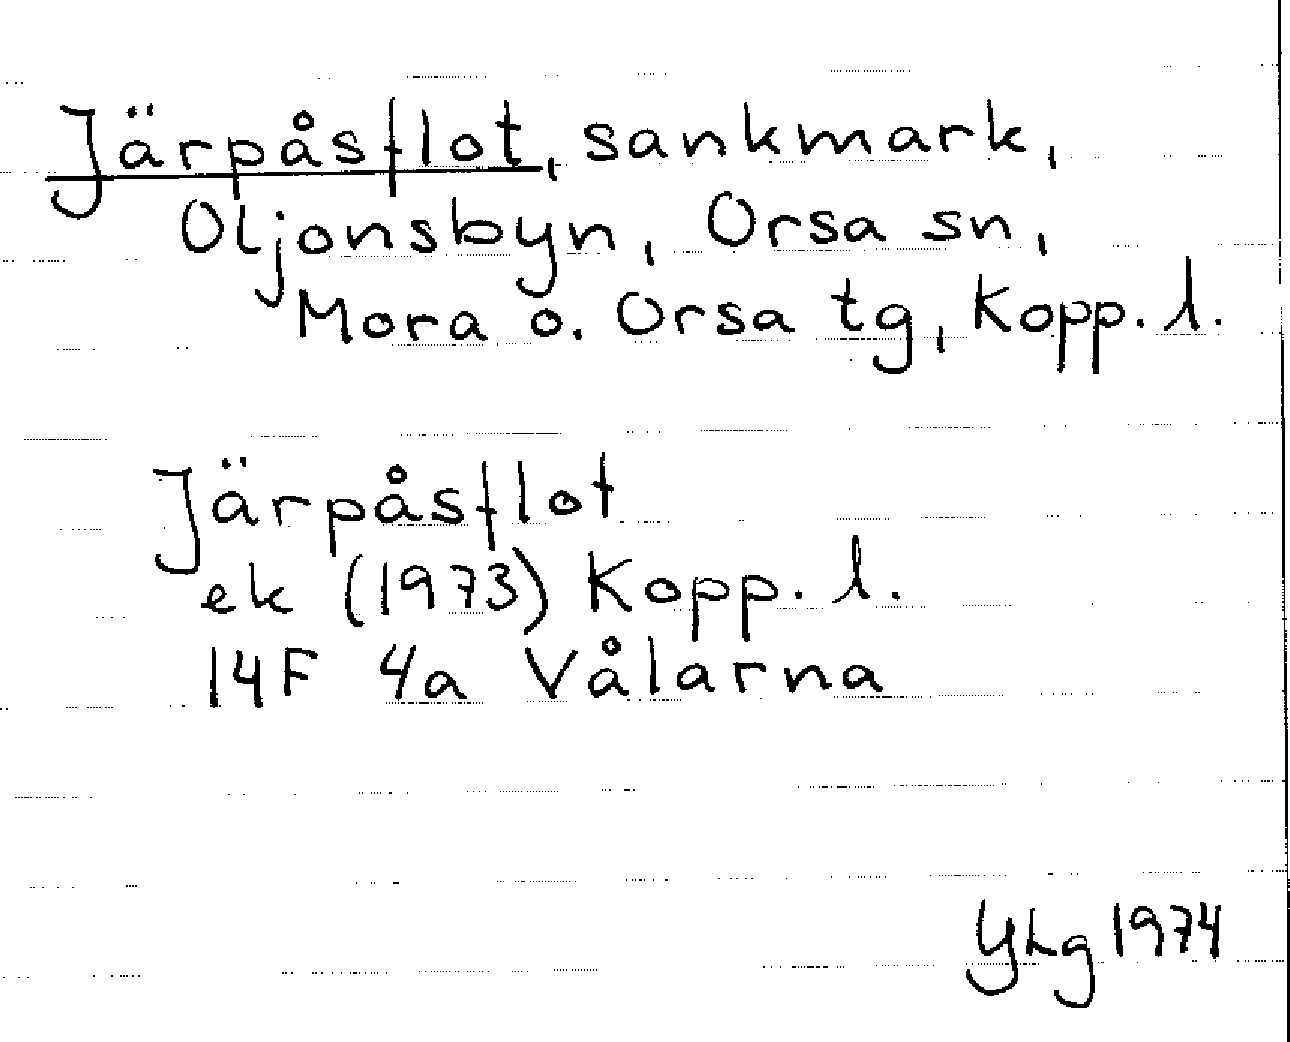 Järpåsflot, sankmark,
Oljonsbyn, Orsa sn,
Mora o. Orsa tg, Kopp. l.
Järpåsflot
ek (1973) Kopp. l.
14F 4a Vålarna
YLg 1974